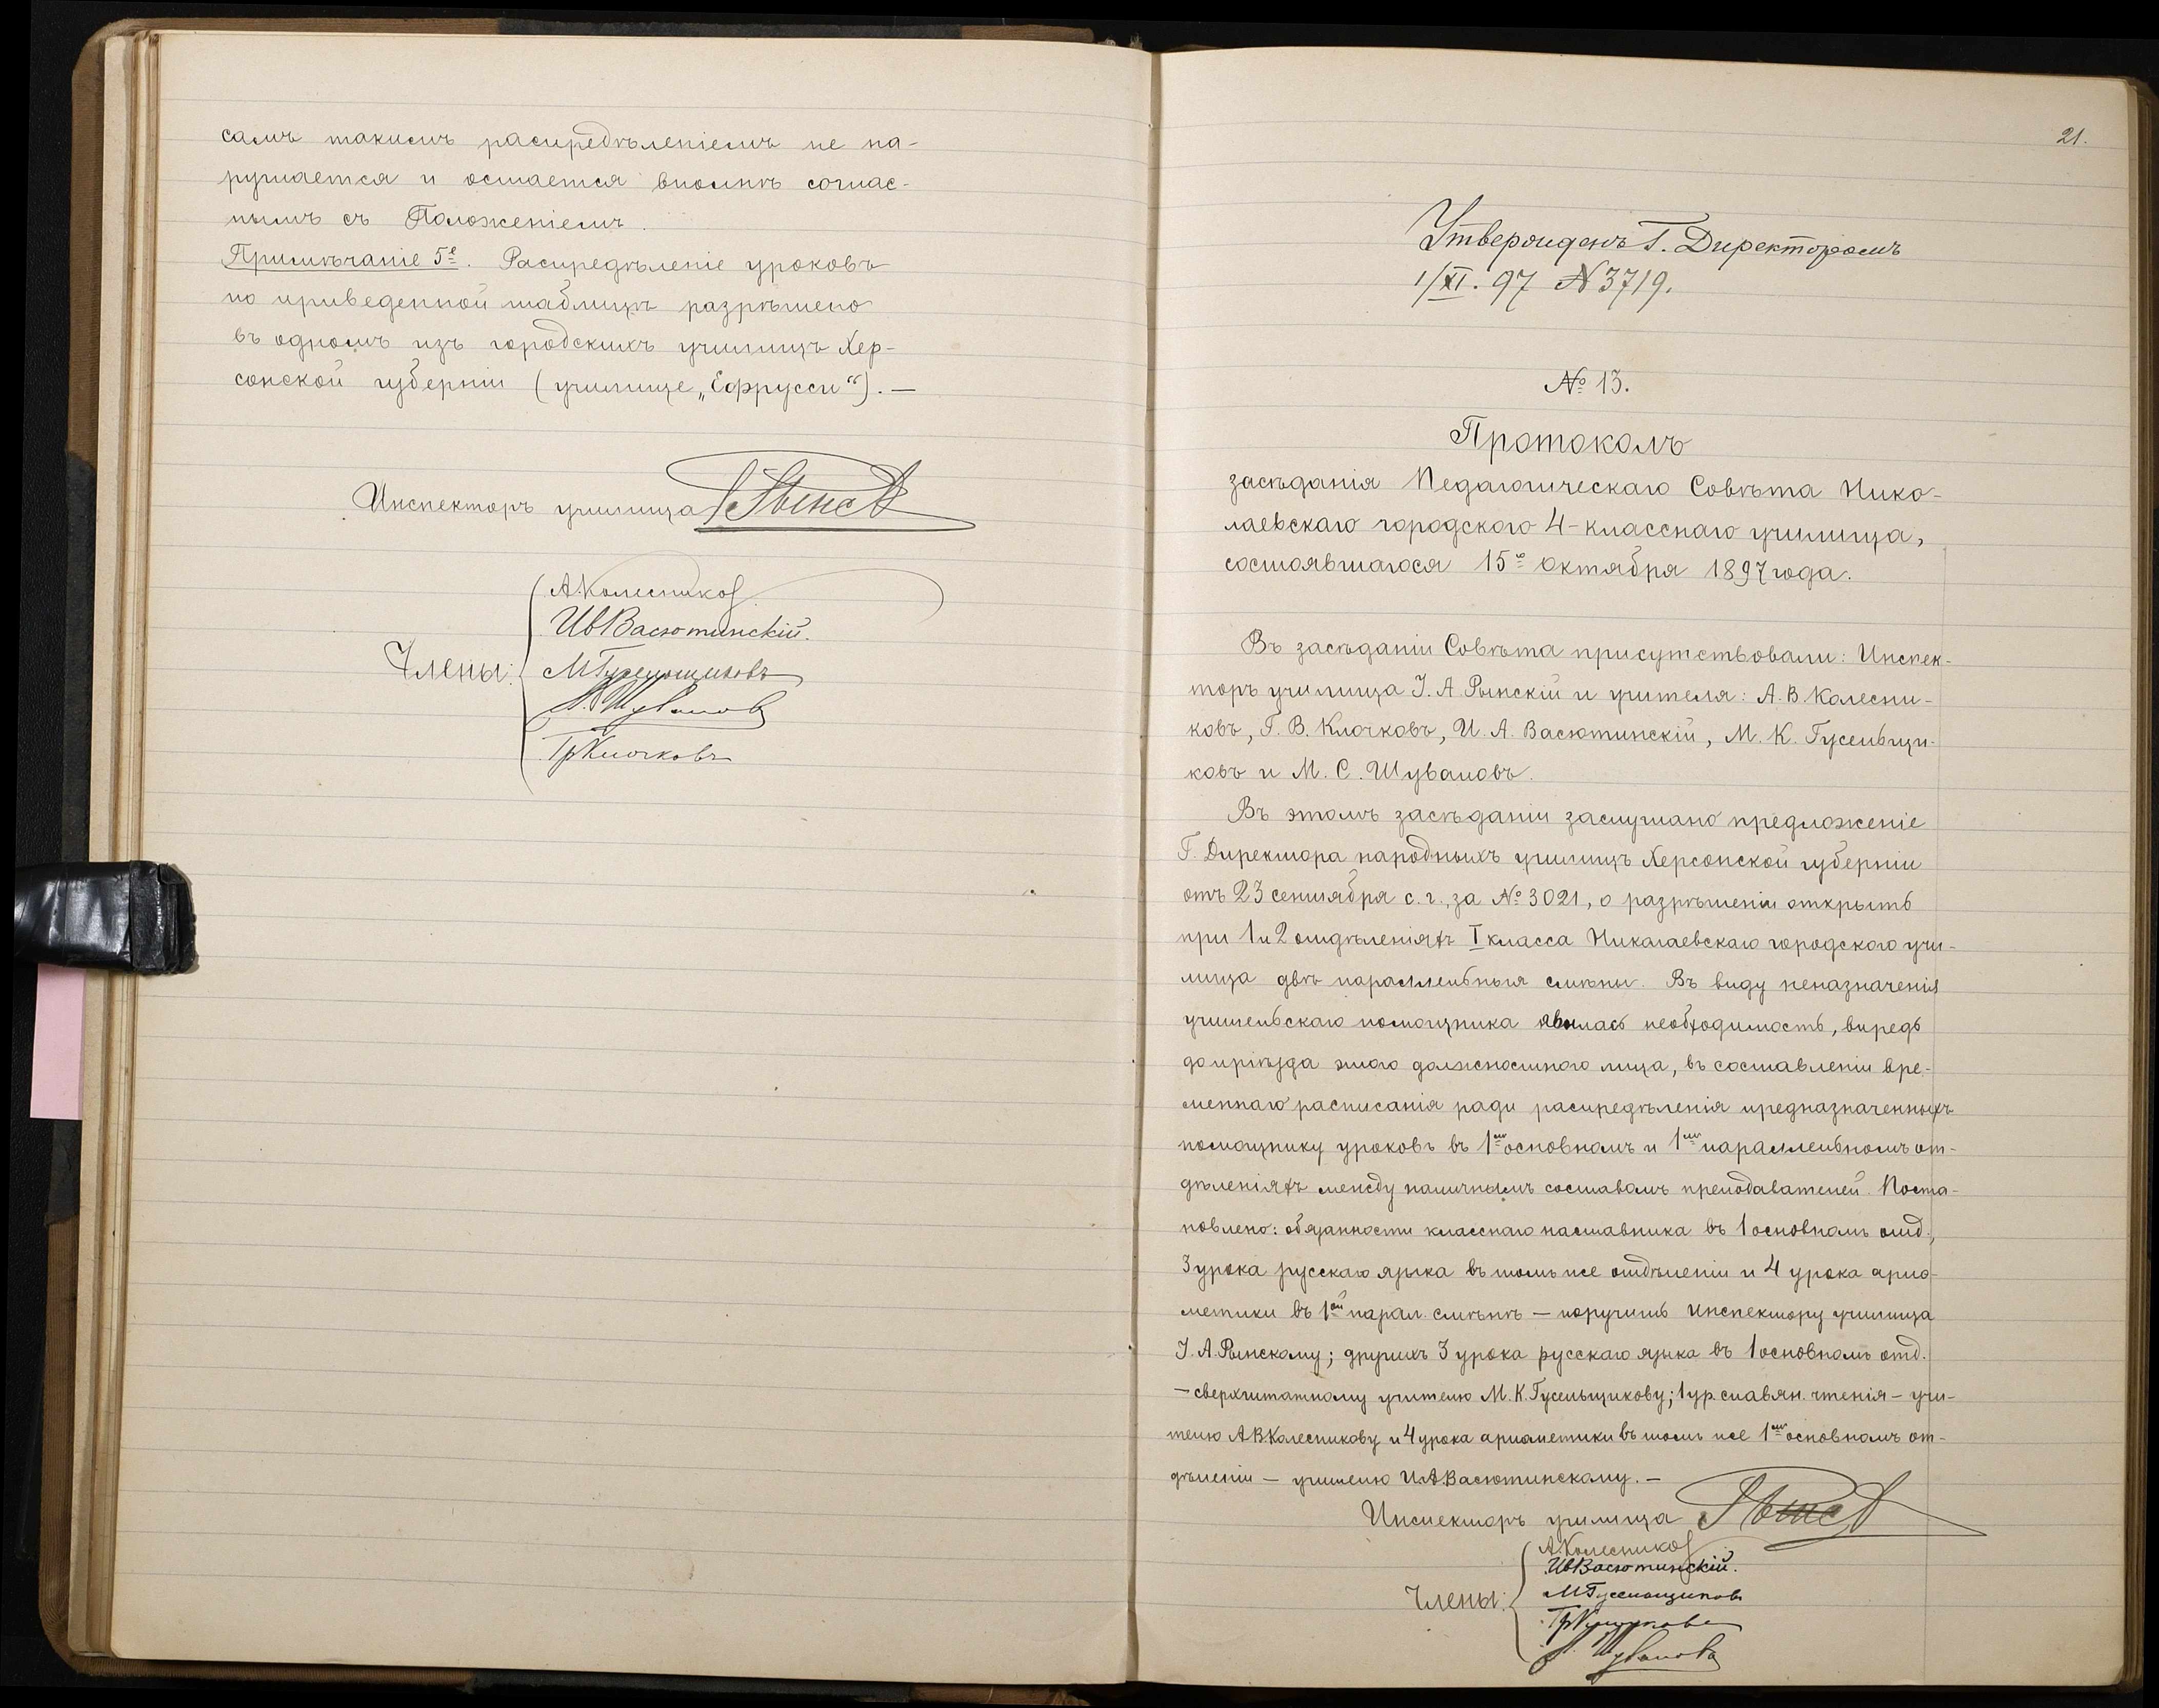 самъ такимъ распредѣленіемъ не на-
рушается и остается вполнѣ соглас-
нымъ съ Положеніемъ.
Примѣчаніе 5е. Распредѣленіе уроковъ
по приведенной таблицѣ разрѣшено
въ одномъ изъ городскихъ училищъ Хер-
сонской губерніи (училище „Ефрусси“). —
Инспекторъ училища
А. Колесников
Ив Васютинскій.
Члены:
М Гусельщиковъ
М. Шувалов
Гр Клочковъ
21.
Утвержденъ Г. Директоромъ
1/XI. 97 N 3719.
№ 13.
Протоколъ
засѣданія Педагогическаго Совѣта Нико-
лаевскаго городского 4-класснаго училища,
состоявшагося 15го октября 1897 года.
Въ засѣданіи Совѣта присутствовали: Инспек-
торъ училища І. А. Рынскій и учителя: А. В. Колесни-
ковъ, Г. В. Клочковъ, И. А. Васютинскій, М. К. Гусельщи-
ковъ и М. С. Шуваловъ.
Въ этомъ засѣданіи заслушано предложеніе
Г. Директора народныхъ училищъ Херсонской губерніи
отъ 23 сентября с. г., за № 3021, о разрѣшеніи открыть
при 1 и 2 отдѣленіяхъ I класса Николаевскаго городского учи-
лища двѣ параллельныя смѣны. Въ виду неназначенія
учительскаго помощника явилась необходимость, впредь
до пріѣзда этого должностного лица, въ составленіи вре-
меннаго расписанія ради распредѣленія предназначенныхъ
помощнику уроковъ въ 1мъ основномъ и 1мъ параллельномъ от-
дѣленіяхъ между наличнымъ составомъ преподавателей. Поста-
новлено: обязанности класснаго наставника въ 1 основномъ отд.,
3 урока русскаго языка въ томъ же отдѣленіи и 4 урока ариѳ-
метики въ 1ой парал. смѣнѣ — поручить Инспектору училища
І. А. Рынскому; другихъ 3 урока русскаго языка въ 1 основномъ отд.
— сверхштатному учителю М. К. Гусельщикову; 1 ур. славян. чтенія — учи-
телю А. В. Колесникову и 4 урока ариѳметики въ томъ же 1мъ основномъ от-
дѣленіи — учителю И. А. Васютинскому. —
Инспекторъ училища
А. Колесников
Ив Васютинскій.
Члены:
М Гусельщиковъ
Гр Клочковъ
М. Шуваловъ